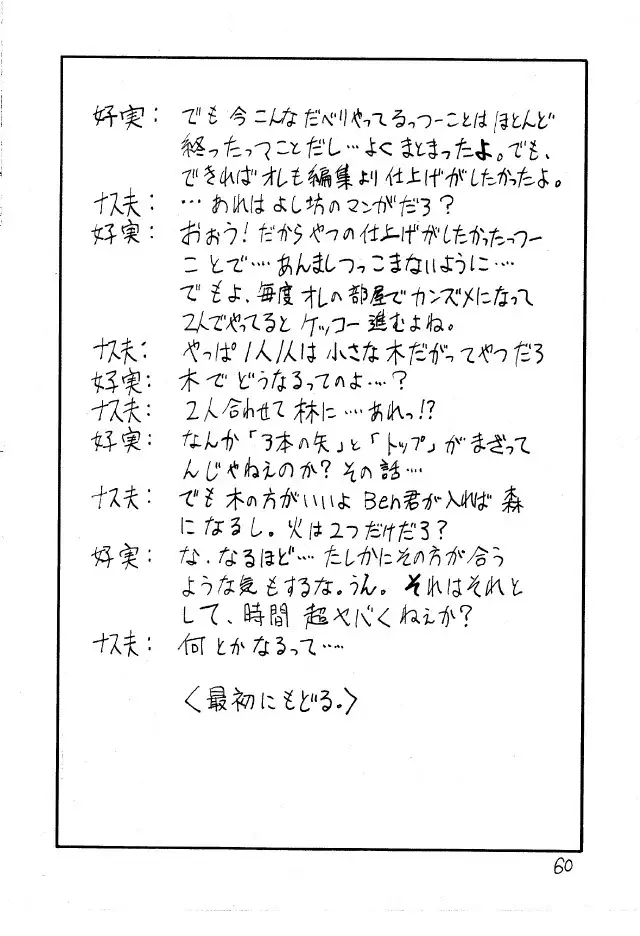 好実： でも今こんなだべりやってるっつーことはほとんど
終ったってことだし…よくまとまったよ。でも、
できればオレも編集より仕上げがしたかったよ。
ナス夫： …あれはよし坊のマンガだろ？
好実： おぉう！だからやつの仕上げがしたかったっつー
ことで‥‥あんまつっこまないように‥‥
でもよ、毎度オレの部屋でカンズメになって
2人でやってるとケッコー進むよね。
ナス夫： やっぱ1人1人は小さな木だがってやつだろ
好実： 木でどうなるってのよ‥‥？
ナス夫： 2人合わせて林に‥‥あれっ!?
好実： なんか「3本の矢」と「トップ」がまざって
んじゃねえのか？その話‥‥
ナス夫： でも木の方がいいよ Ben君が入れば森
になるし。火は2つだけだろ？
好実： な、なるほど‥‥たしかにその方が合う
ような気もするな。うん。それはそれと
して、時間超ヤバくねぇか？
ナス夫： 何とかなるって‥‥
〈最初にもどる。〉
60